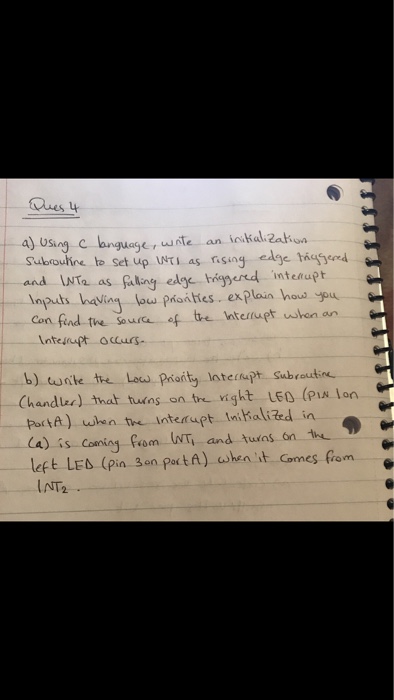 Ques 4
a) Using C language, write an initialization
Subroutine to set up INT1 as rising edge triggered
and INT2 as falling edge triggered interrupt
Inputs having low priorities. explain how you
Can find the source of the interrupt when an
Interrupt occurs.
b) write the Low Priority Interrupt Subroutine
(handler) that turns on the right LED (PIN 1 on
PortA) when the interrupt Initialized in
(a) is coming from INT1 and turns on the
left LED (pin 3 on port A) when it comes from
INT2.